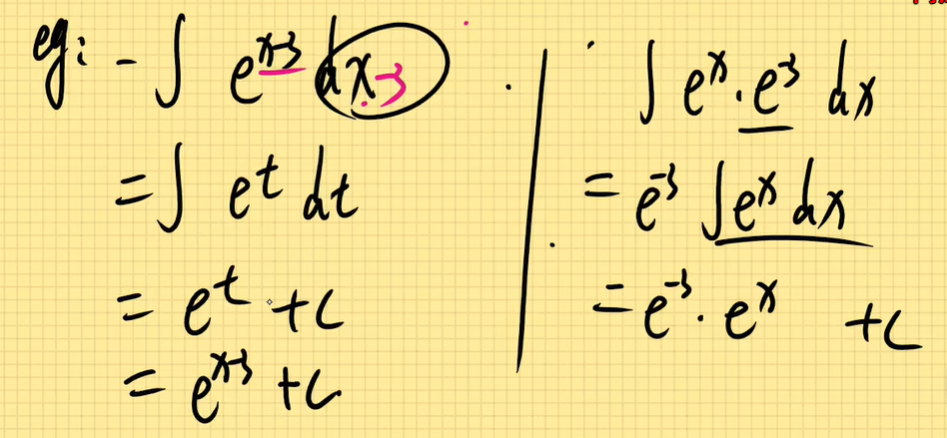 eg: - ∫ e^{x-3} dx-3
= ∫ e^t dt
= e^t + c
= e^{x-3} + c
∫ e^x · e^{-3} dx
= e^{-3} ∫ e^x dx
= e^{-3} · e^x + c